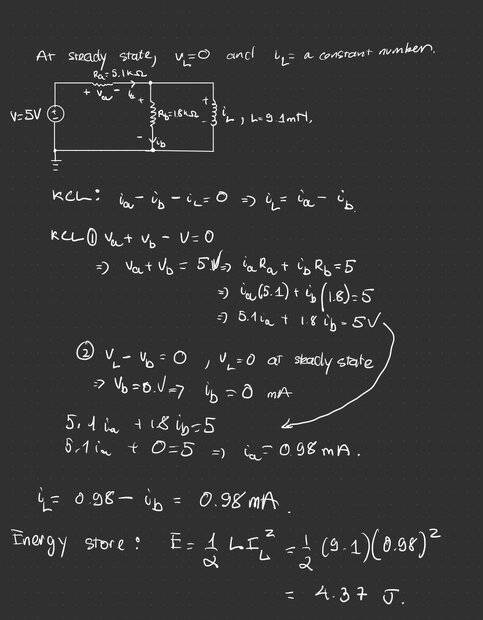 At steady state, v_L=0 and i_L= a constant number.
Ra=5.1kΩ
+ va - ia
V=5V
+ Rb=1.8kΩ -
ib
+ - iL, L=9.1mH,
KCL: ia - ib - iL = 0 => iL = ia - ib
KCL ① Va + Vb - V = 0
=> Va + Vb = 5V => iaRa + ibRb = 5
=> ia(5.1) + ib(1.8) = 5
=> 5.1ia + 1.8ib = 5V
② VL - Vb = 0 , VL=0 at steady state
=> Vb = 0V => ib = 0 mA
5.1ia + 1.8ib = 5
5.1ia + 0 = 5 => ia = 0.98mA.
iL = 0.98 - ib = 0.98mA.
Energy store: E = 1/2 LI_L^2 = 1/2 (9.1)(0.98)^2
= 4.37 J.